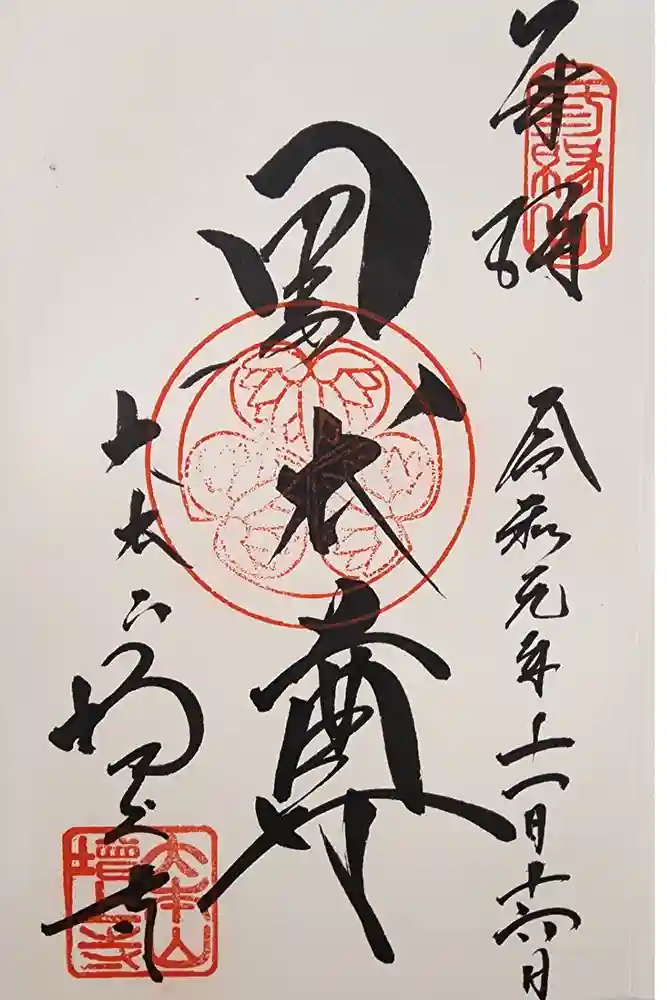 奉拝
令和元年十一月十六日
黒本尊
大本山
増上寺
大本山
増上寺